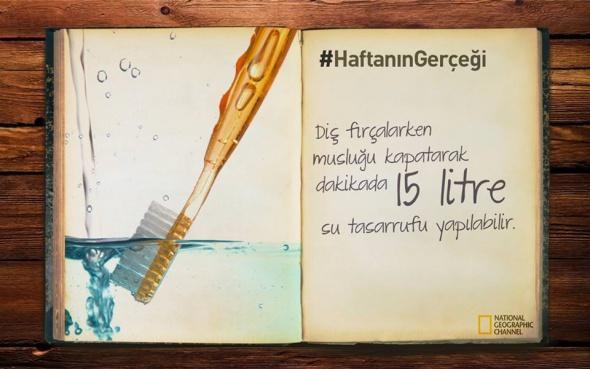 #HaftanınGerçeği
Diş fırçalarken
musluğu kapatarak
dakikada 15 litre
su tasarrufu yapılabilir.
NATIONAL
GEOGRAPHIC
CHANNEL